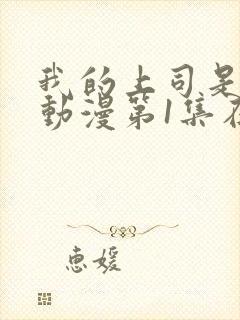 我的上司是
動漫第1集在
惠媛